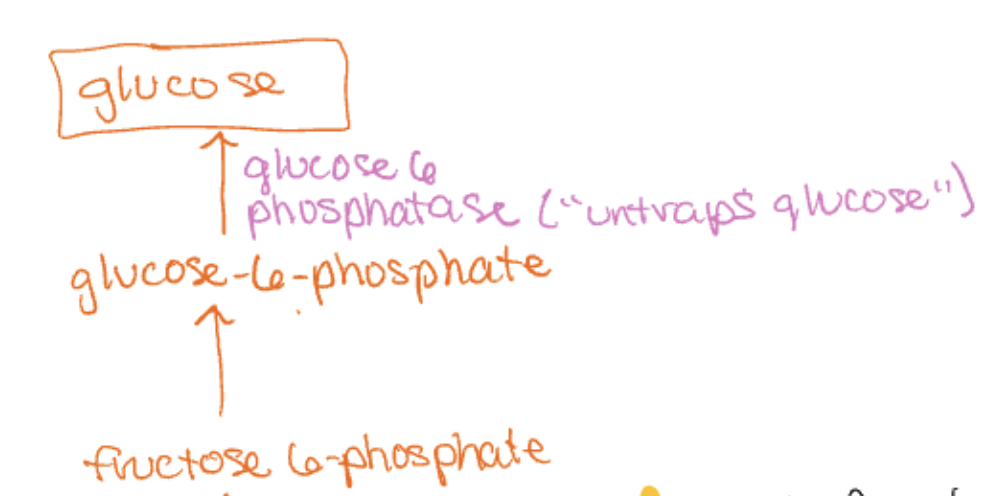 glucose
glucose 6
phosphatase ("untraps glucose")
glucose-6-phosphate
fructose 6-phosphate